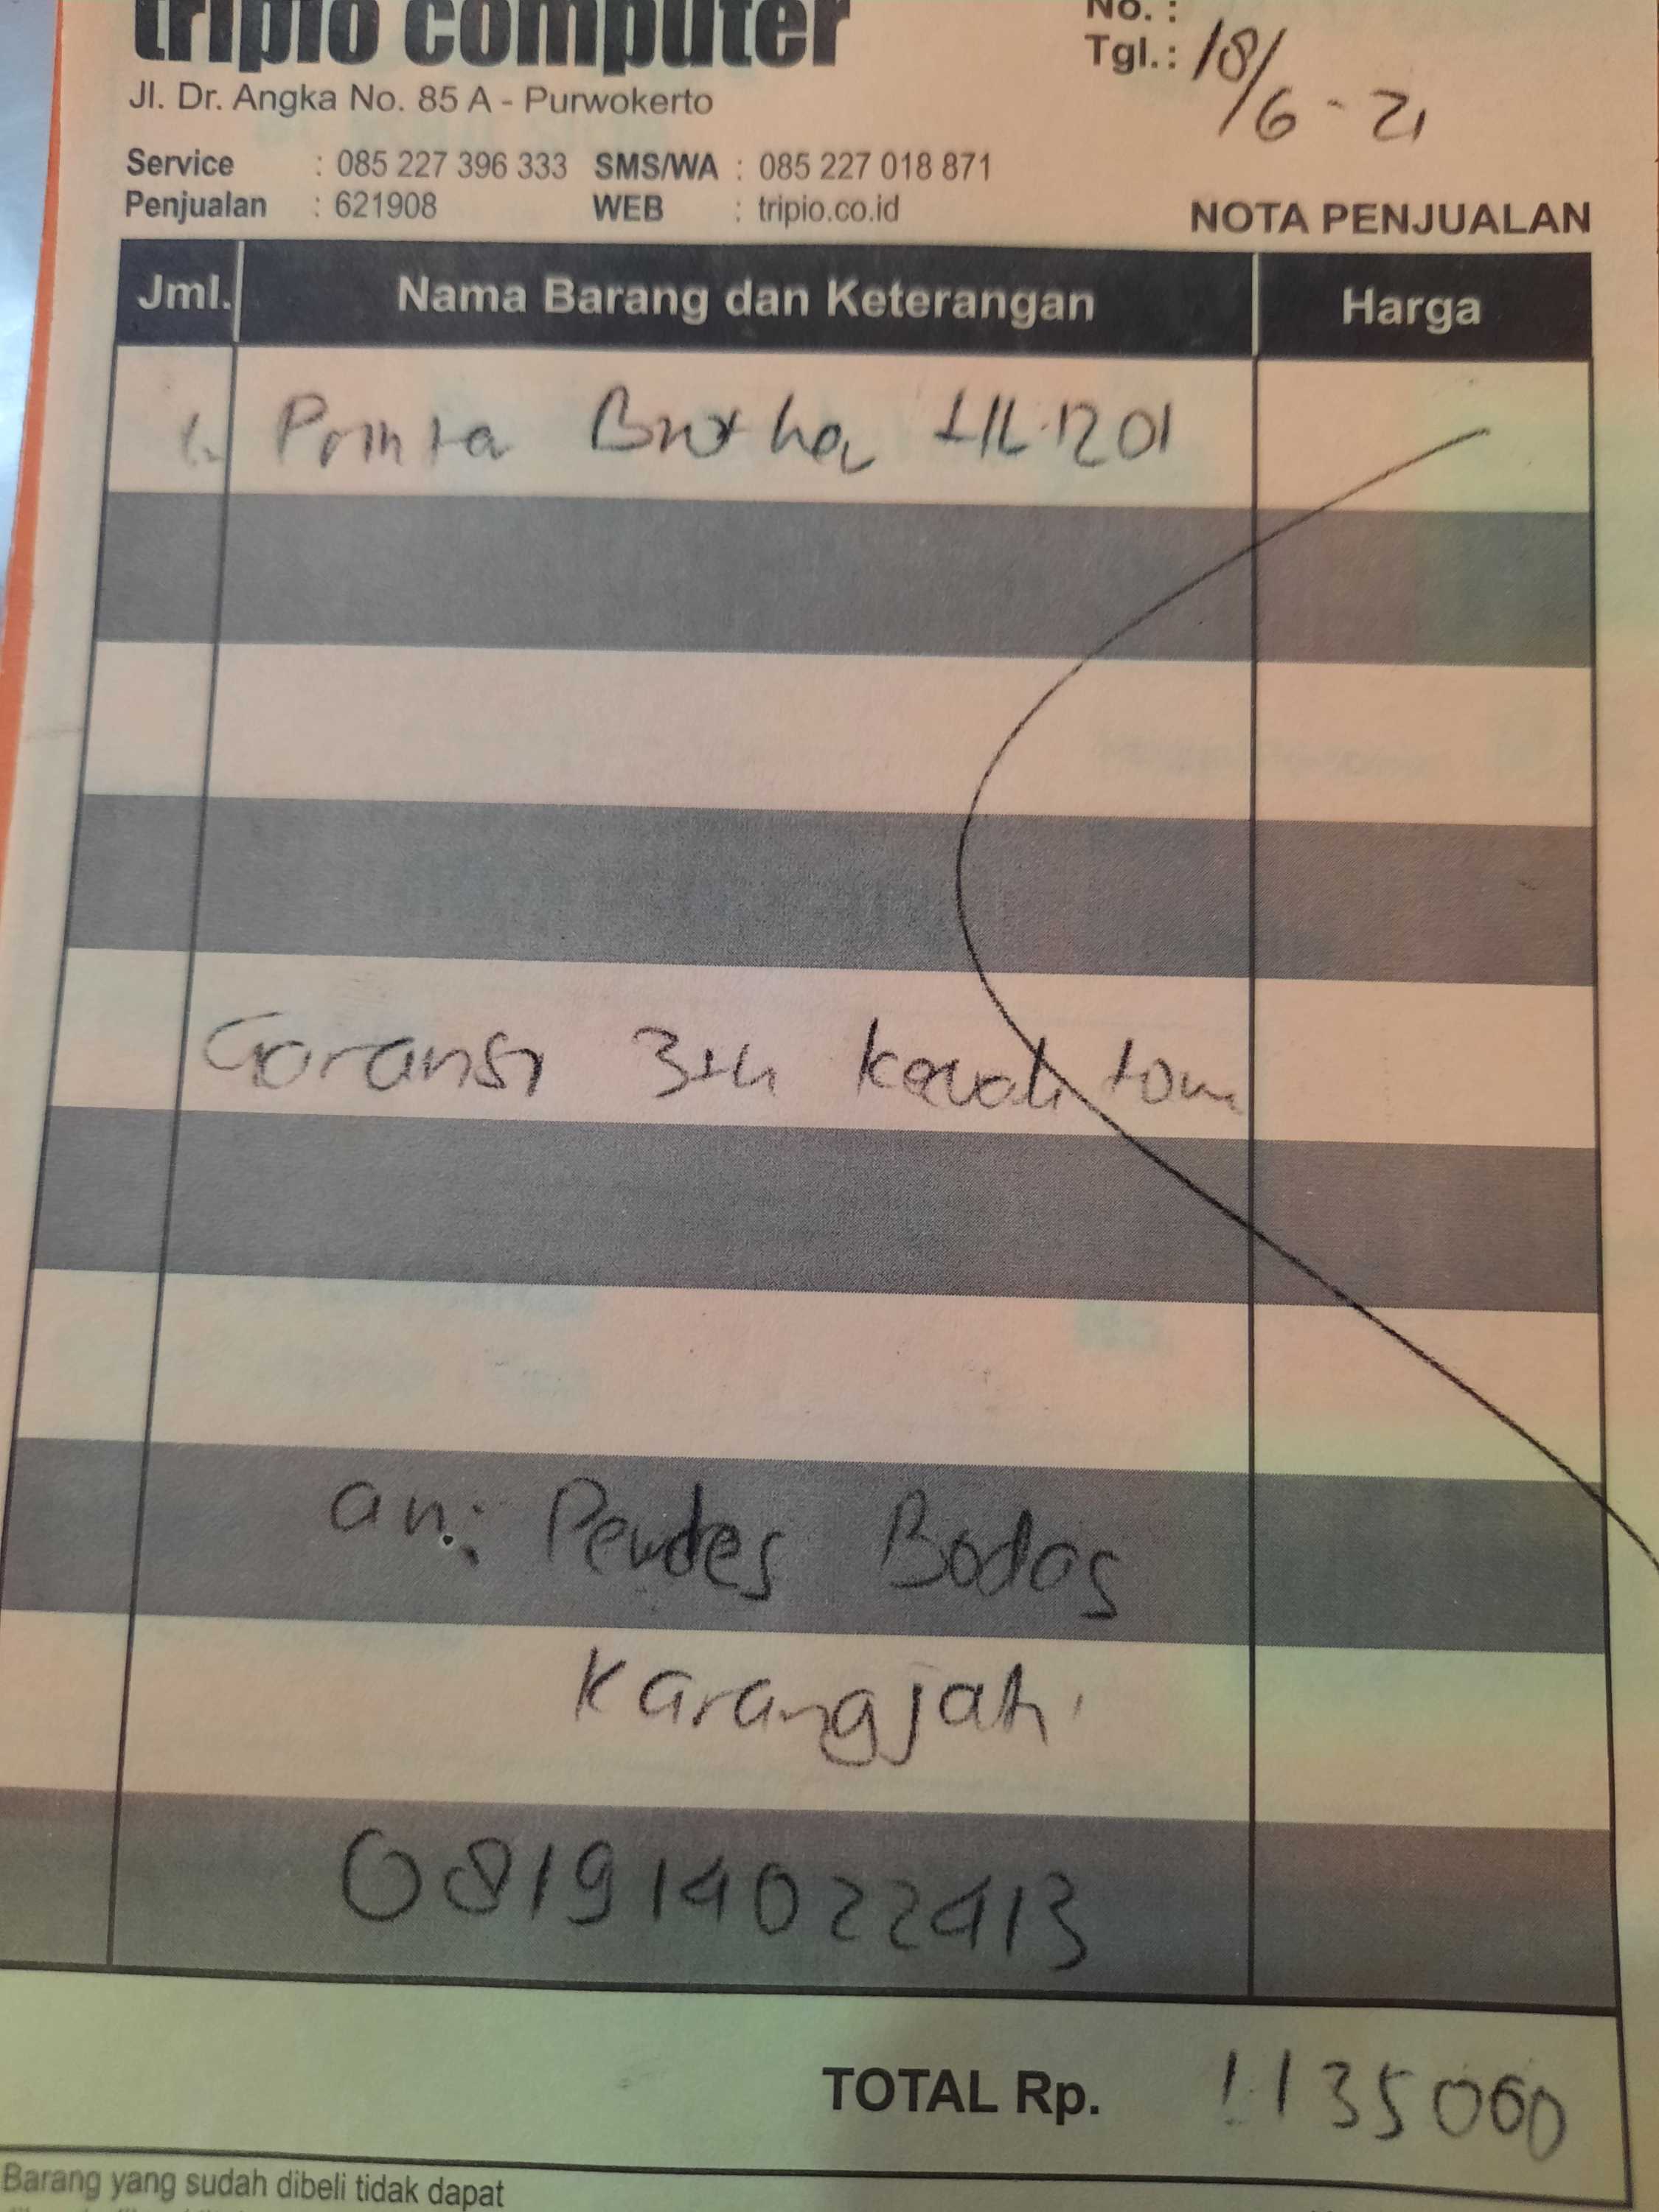 tripio computer
Jl. Dr. Angka No. 85 A - Purwokerto
Service : 085 227 396 333 SMS/WA : 085 227 018 871
Penjualan : 621908 WEB : tripio.co.id
No. :
Tgl.: 18/6-21
NOTA PENJUALAN
Jml. Nama Barang dan Keterangan Harga
1. Printer Brother HL 1201
Garansi 3th kecuali
an: Pemdes Bodas
Karangjati
081914022413
TOTAL Rp. 1.135000
Barang yang sudah dibeli tidak dapat